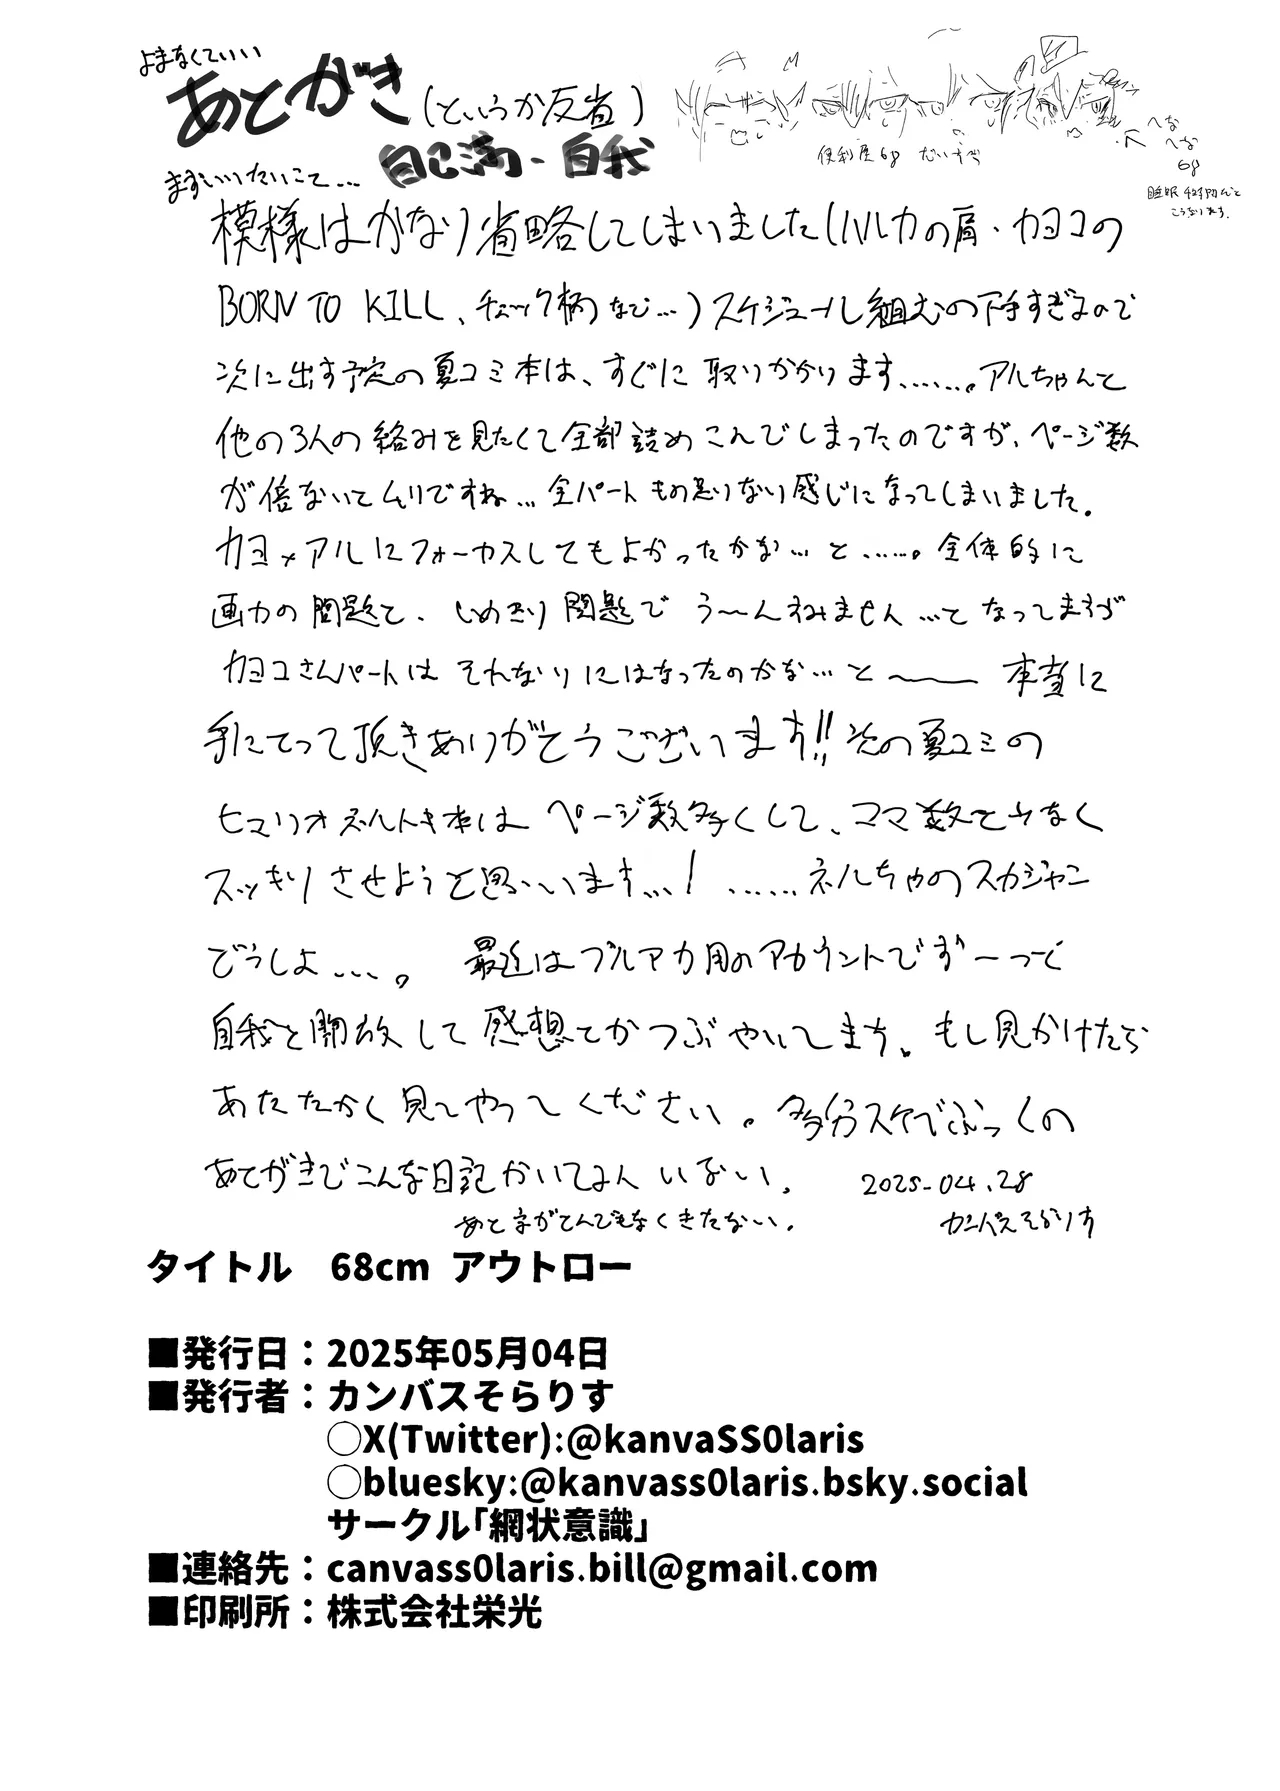 よまなくていい
あとがき(というか反省)
自己満・自我
まずいいたいこと…
便利屋68 だいすき
へな
へな
68
睡眠4時間だと
こうなります。
模様はかなり省略してしまいました(ハルカの肩・カヨコの
BORN TO KILL、チェック柄など…)スケジュール組むの下手すぎるので
次に出す予定の夏コミ本は、すぐに取りかかります……。アルちゃんと
他の3人の絡みを見たくて全部詰めこんでしまったのですが、ページ数
が倍ないとムリですね…全パートもの足りない感じになってしまいました。
カヨ×アルにフォーカスしてもよかったかな…と……。全体的に
画力の問題と、しめきり問題でう〜んすみません…となってますが
カヨコさんパートはそれなりにはなったのかな…と〜 本当に
手にとって頂きありがとうございます!!次の夏コミの
ヒマリオネルトキ本はページ数多くして、コマ数を少なく
スッキリさせようと思います…! ……ネルちゃのスカジャン
どうしよ…。 最近はブルアカ用のアカウントでずーっと
自我を開放して感想とかつぶやいてます。もし見かけたら
あたたかく見てやってください。多分スケでぶっくの
あとがきでこんな日記かいてる人いない。 2025.04.28
あと字がとんでもなくきたない。 カンバスそらりす
タイトル 68cm アウトロー
■発行日:2025年05月04日
■発行者:カンバスそらりす
○X(Twitter):@kanvaSS0laris
○bluesky:@kanvass0laris.bsky.social
サークル「網状意識」
■連絡先:canvass0laris.bill@gmail.com
■印刷所:株式会社栄光